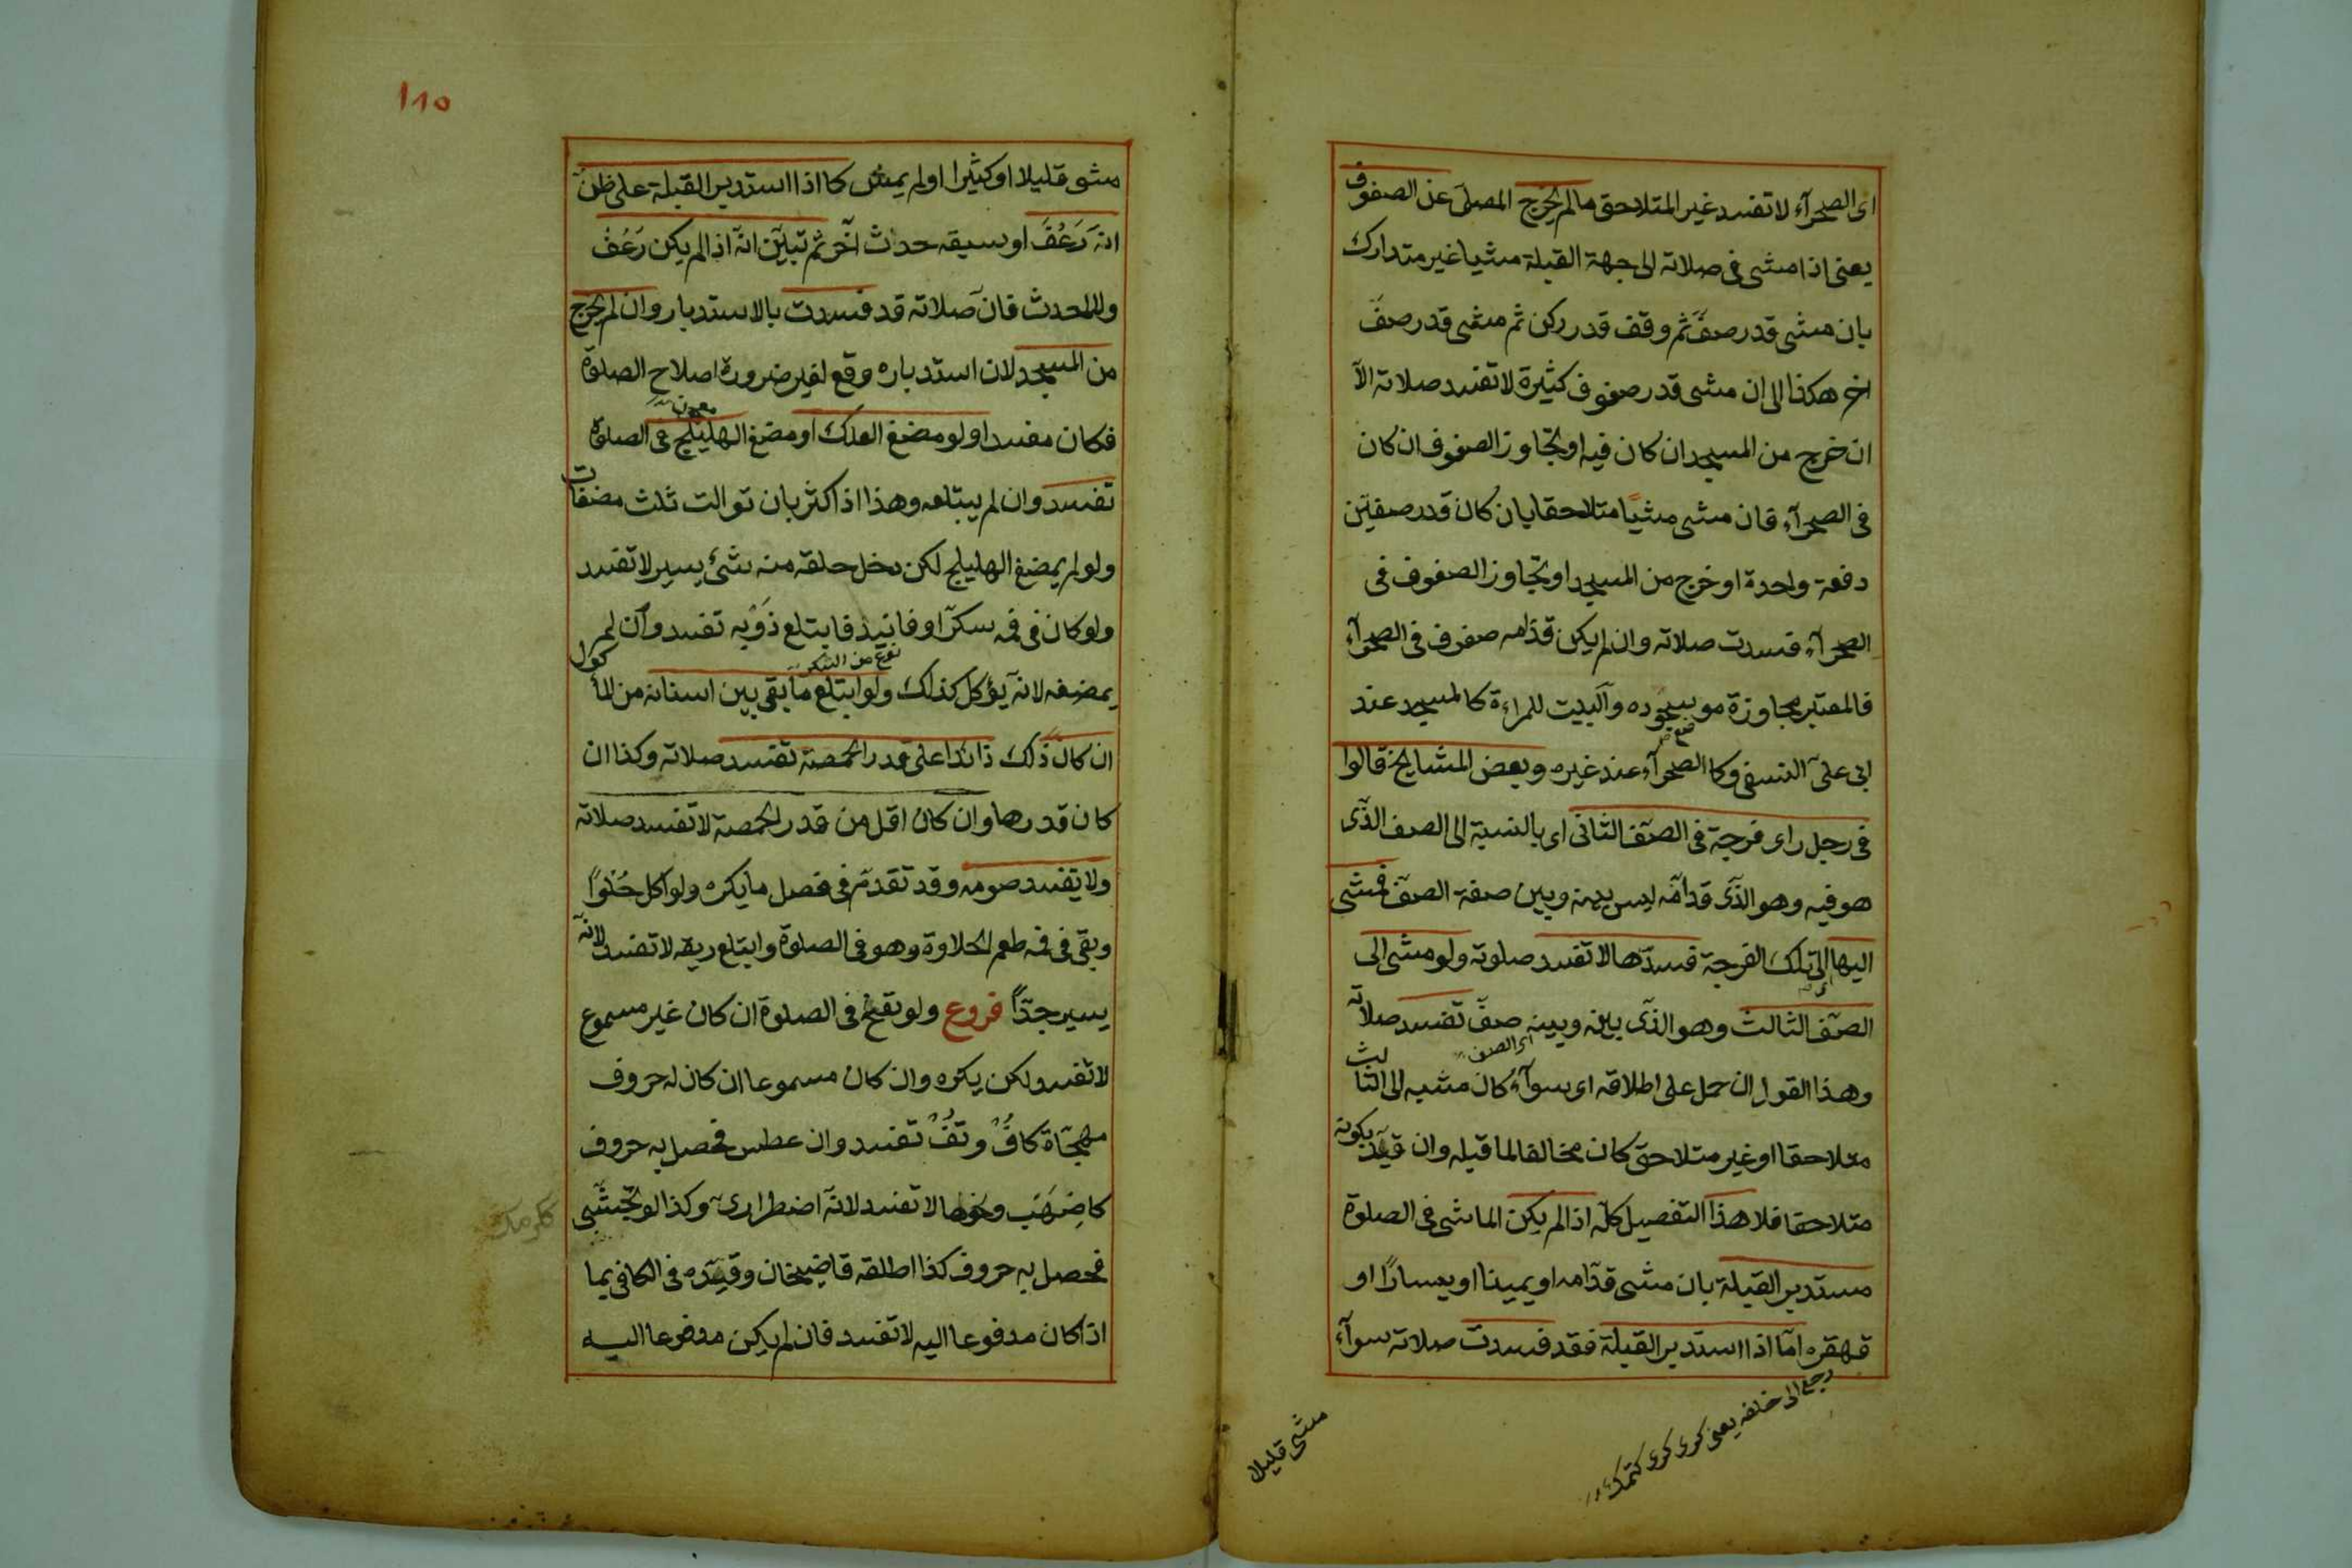 اى الصحرآء لا تفسد غير المتلاحق ما لم يخرج المصلى عن الصفوف
يعنى اذا مشى فى صلاته الى جهة القبلة مشيا غير متدارك
بان مشى قدر صف ثم وقف قدر ركن ثم مشى قدر صف
اخر هكذا الى ان مشى قدر صفوف كثيرة لا تفسد صلاته الا
ان خرج من المسجد ان كان فيه او تجاوز الصفوف ان كان
فى الصحرآء فان مشى مشيا متلاحقا بان كان قدر صفين
دفعة واحدة او خرج من المسجد او تجاوز الصفوف فى
الصحرآء فسدت صلاته وان لم يكن قدامه صفوف فى الصحرآء
فالمعتبر مجاوزة موضع سجوده والبيت للمراءة كالمسجد عند
ابى على النسفى وكالصحرآء عند غيره وبعض المشايخ قالوا
فى رجل راى فرجة فى الصف الثانى اى بالنسبة الى الصف الذى
هو فيه وهو الذى قدامه ليس بينه وبين صفه الصف فمشى
اليها اى الى تلك الفرجة فسدها لا تفسد صلوته ولو مشى الى
الصف الثالث وهو الذى بينه وبينه صف تفسد صلاته
اى الصف
وهذا القول ان حمل على اطلاقه اى سوآء كان مشيه الى الثالث
متلاحقا او غير متلاحق كان مخالفا لما قبله وان قيد بكونه
متلاحقا فلا هذا التفصيل كله اذا لم يكن الماشى فى الصلوة
مستدبر القبلة بان مشى قدامه او يمينا او يسارا او
قهقره اما اذا استدبر القبلة فقد فسدت صلاته سوآء
رجع الى خلفه يعنى كرى كرى كتمك
مشى قليلا
١١٥
مشى قليلا او كثيرا او لم يمش كما اذا استدبر القبلة على ظن
انه رعف او سبقه حدث آخر ثم تبين انه اذا لم يكن رعف
ولا لمحدث فان صلاته قد فسدت بالاستدبار وان لم يخرج
من المسجد لان استدباره وقع لغير ضرورة اصلاح الصلوة
فكان مفسدا ولو مضغ العلك او مضغ الهليلج فى الصلوة
تفسد وان لم يبتلعه وهذا اذا كثر بان توالت ثلث مضغات
ولو لم يمضغ الهليلج لكن دخل حلقه منه شئ يسير لا تفسد
ولو كان فى فمه سكر او فانيذ فابتلع ذوبه تفسد وان لم
نوع من السكر
يمضغه لانه يؤكل كذلك ولو ابتلع ما بقى بين اسنانه من المأكول
ان كان ذلك زائدا على قدر الحمصة تفسد صلاته وكذا ان
كان قدرها وان كان اقل من قدر الحمصة لا تفسد صلاته
ولا يفسد صومه وقد تقدم فى فصل ما يكره ولو اكل حلوا
وبقى فى فمه طعم الحلاوة وهو فى الصلوة وابتلع ريقه لا تفسد لانه
يسير جدا فروع ولو نفخ فى الصلوة ان كان غير مسموع
لا تفسد ولكن يكره وان كان مسموعا ان كان له حروف
مهجاة كاف وتف تفسد وان عطس فحصل به حروف
كاضهب ونحوها لا تفسد لانه اضطرارى وكذا لو تجشى
فحصل به حروف كذا اطلقه قاضيخان وقيده فى الكافى بما
اذا كان مدفوعا اليه لا تفسد فان لم يكن مدفوعا اليه
ككرمك